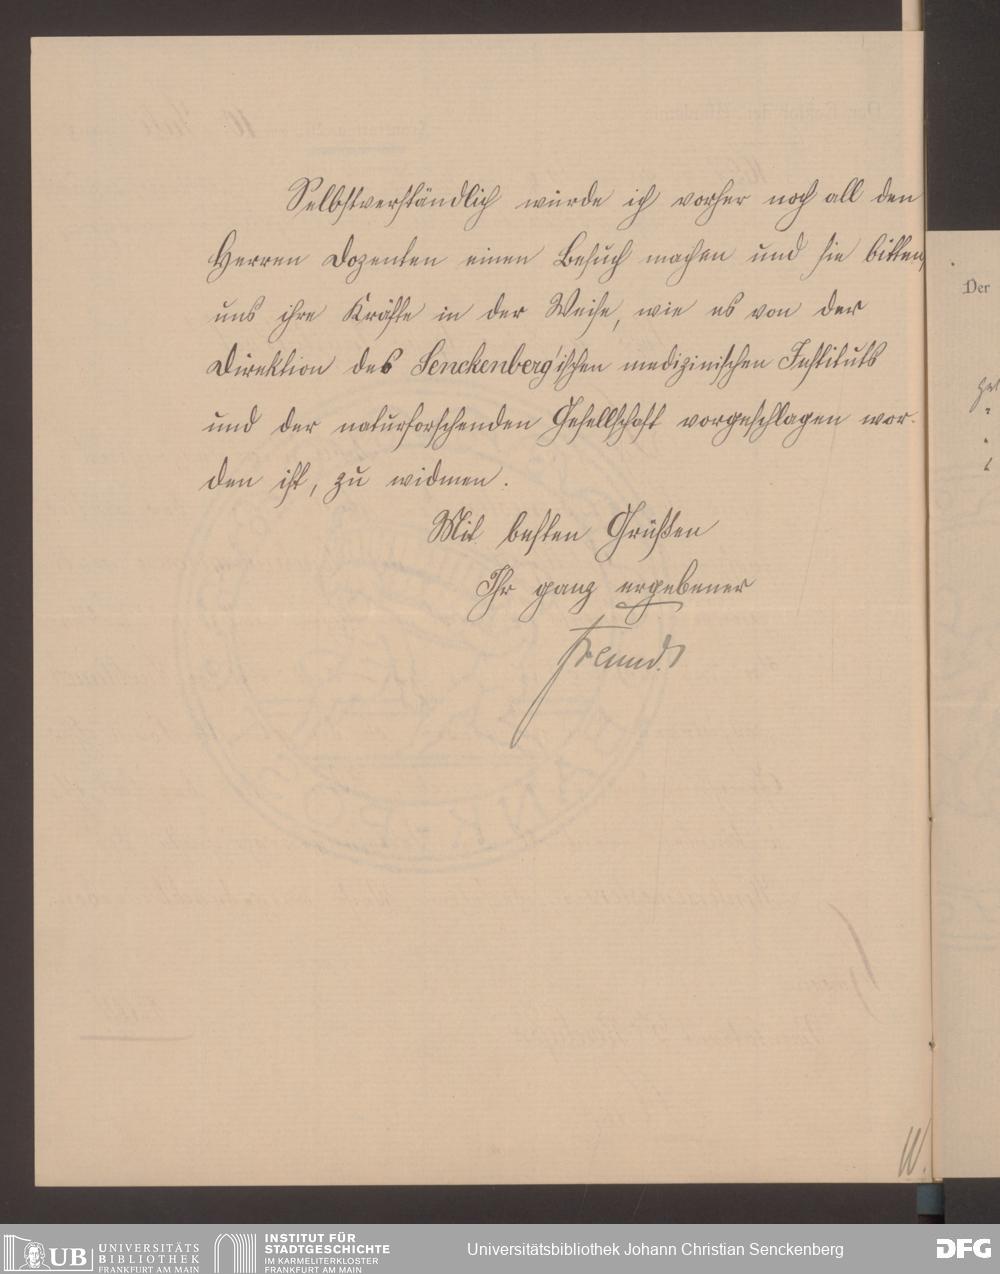 Selbstverständlich würde ich vorher noch all den
Herren Dozenten einen Besuch machen und sie bitten,
uns ihre Kräfte in der Weise, wie es von der
Direktion des Senckenberg'ischen medizinischen Instituts
und der naturforschenden Gesellschaft vorgeschlagen wor-
den ist, zu widmen.
Mit besten Grüßen
Ihr ganz ergebener
Freund.
W.
Der
UB UNIVERSITÄTS
BIBLIOTHEK
FRANKFURT AM MAIN
INSTITUT FÜR
STADTGESCHICHTE
IM KARMELITERKLOSTER
FRANKFURT AM MAIN
Universitätsbibliothek Johann Christian Senckenberg
DFG